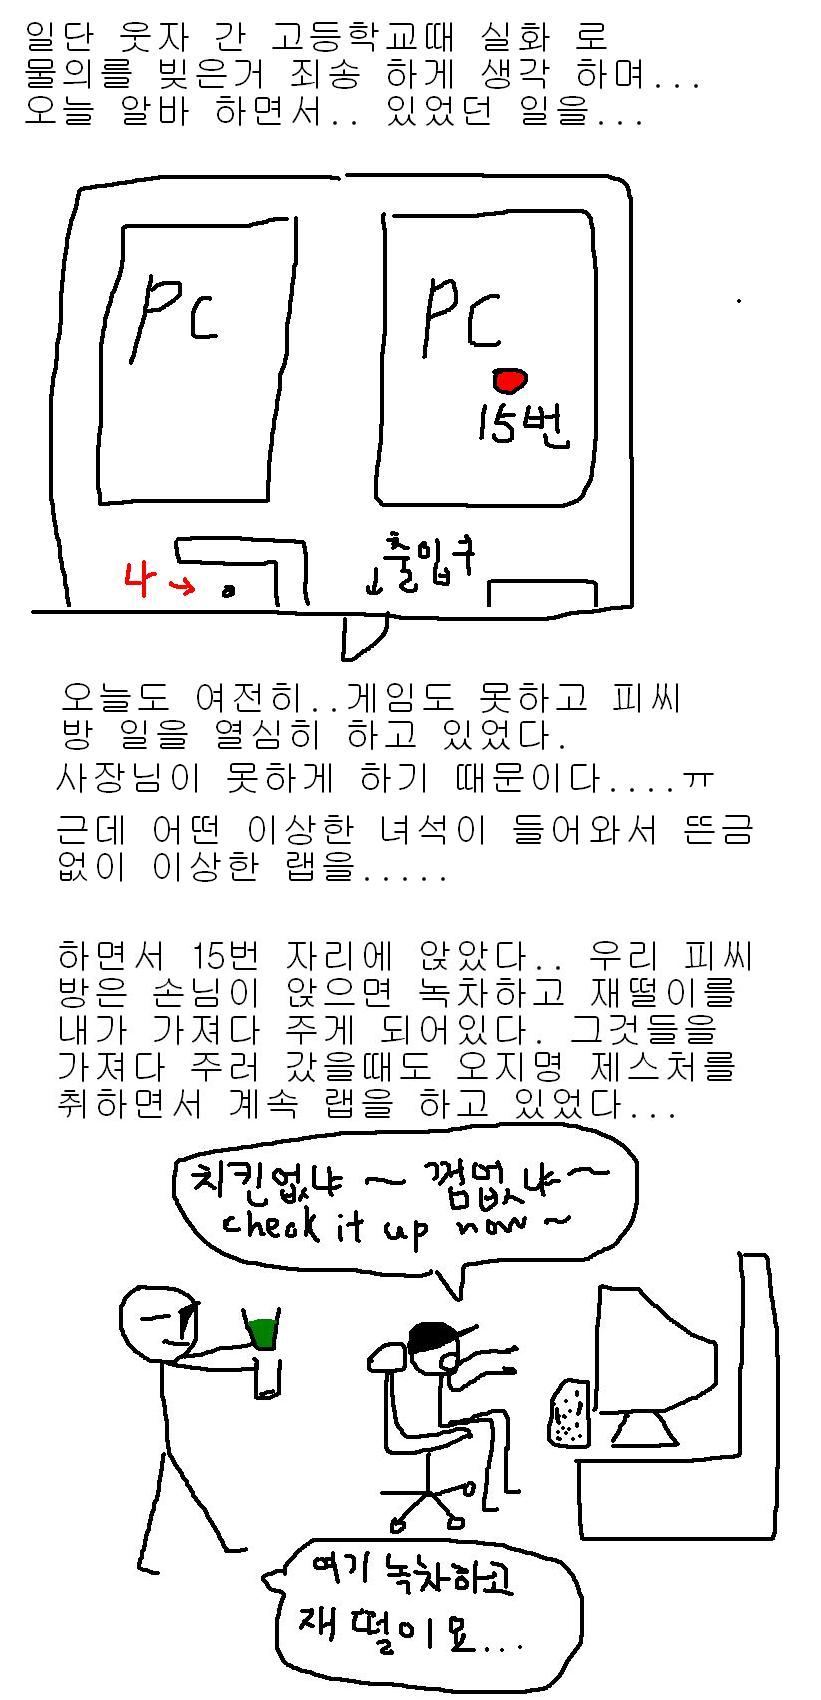 일단 웃자 간 고등학교때 실화 로
물의를 빚은거 죄송 하게 생각 하며...
오늘 알바 하면서.. 있었던 일을...
PC
PC
15번
출입구
나
오늘도 여전히..게임도 못하고 피씨
방 일을 열심히 하고 있었다.
사장님이 못하게 하기 때문이다....ㅠ
근데 어떤 이상한 녀석이 들어와서 뜬금
없이 이상한 랩을.....
하면서 15번 자리에 앉았다.. 우리 피씨
방은 손님이 앉으면 녹차하고 재떨이를
내가 가져다 주게 되어있다. 그것들을
가져다 주러 갔을때도 오지명 제스처를
취하면서 계속 랩을 하고 있었다...
치킨없냐 ~ 껌없냐~
check it up now ~
여기 녹차하고
재떨이요...